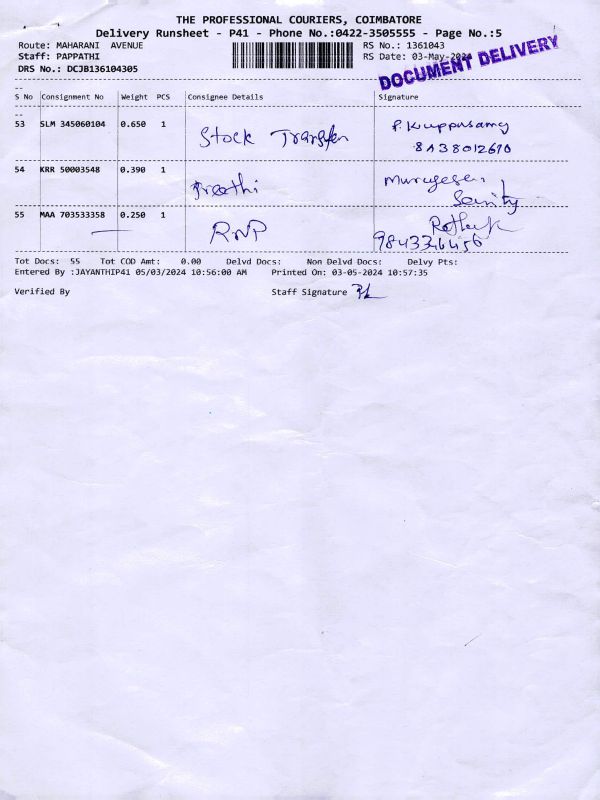 THE PROFESSIONAL COURIERS, COIMBATORE
Delivery Runsheet - P41 - Phone No.:0422-3505555 - Page No.:5
Route: MAHARANI AVENUE RS No.: 1361043
Staff: PAPPATHI RS Date: 03-May-2024
DRS No.: DCJB136104305
DOCUMENT DELIVERY
S No Consignment No Weight PCS Consignee Details Signature
53 SLM 345060104 0.650 1 Stock Transfer P. Kuppusamy
54 KRR 50003548 0.390 1 Preethi Murugesan
Security
55 MAA 703533358 0.250 1 RNP
9843346456
Tot Docs: 55 Tot COD Amt: 0.00 Delvd Docs: Non Delvd Docs: Delvy Pts:
Entered By :JAYANTHIP41 05/03/2024 10:56:00 AM Printed On: 03-05-2024 10:57:35
Verified By Staff Signature